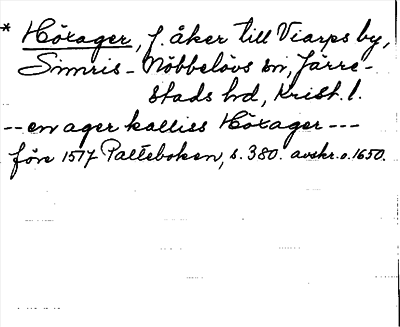 * Höxager, f. åker till Viarps by,
Simris-Nöbbelövs sn, Järre-
stads hd, Krist. l.
-- en ager kalliss Höxager ---
före 1577 Palteboken, s. 380. avskr. o. 1650.